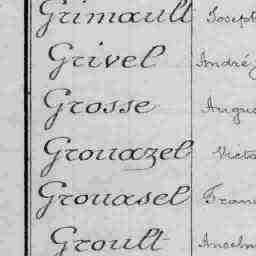 Grimault Joseph
Grivel André
Grosse Augus
Grouazel Victo
Grouasel Fran
Groult Anselm